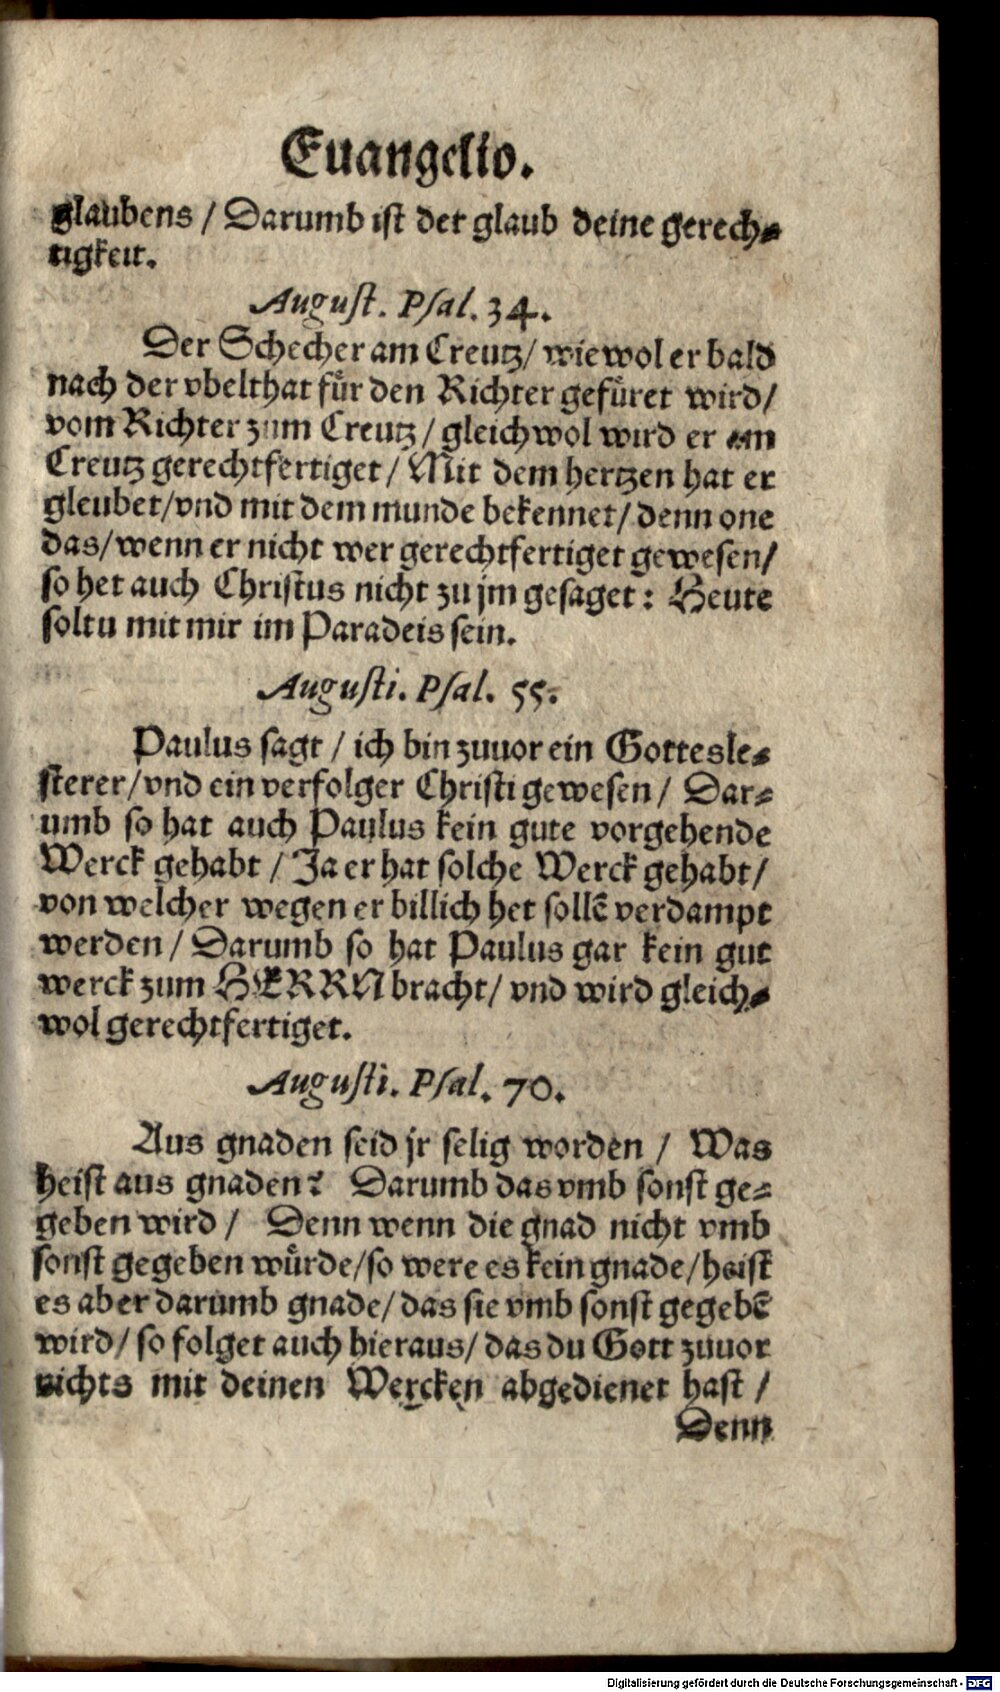 Euangelio.
glaubens / Darumb ist der glaub deine gerech⸗
tigkeit.
August. Psal. 34.
Der Schecher am Creutz / wiewol er bald
nach der vbelthat fuͤr den Richter gefuͤret wird /
vom Richter zum Creutz / gleichwol wird er am
Creutz gerechtfertiget / Mit dem hertzen hat er
gleubet / vnd mit dem munde bekennet / denn one
das / wenn er nicht wer gerechtfertiget gewesen /
so het auch Christus nicht zu jm gesaget: Heute
soltu mit mir im Paradeis sein.
Augusti. Psal. 55.
Paulus sagt / ich bin zuuor ein Gottesle⸗
sterer / vnd ein verfolger Christi gewesen / Dar⸗
umb so hat auch Paulus kein gute vorgehende
Werck gehabt / Ja er hat solche Werck gehabt /
von welcher wegen er billich het sollē verdampt
werden / Darumb so hat Paulus gar kein gut
werck zum HERRN bracht / vnd wird gleich⸗
wol gerechtfertiget.
Augusti. Psal. 70.
Aus gnaden seid jr selig worden / Was
heist aus gnaden? Darumb das vmb sonst ge⸗
geben wird / Denn wenn die gnad nicht vmb
sonst gegeben wuͤrde / so were es kein gnade / heist
es aber darumb gnade / das sie vmb sonst gegebē
wird / so folget auch hieraus / das du Gott zuuor
nichts mit deinen Wercken abgedienet hast /
Denn
Digitalisierung gefördert durch die Deutsche Forschungsgemeinschaft - DFG